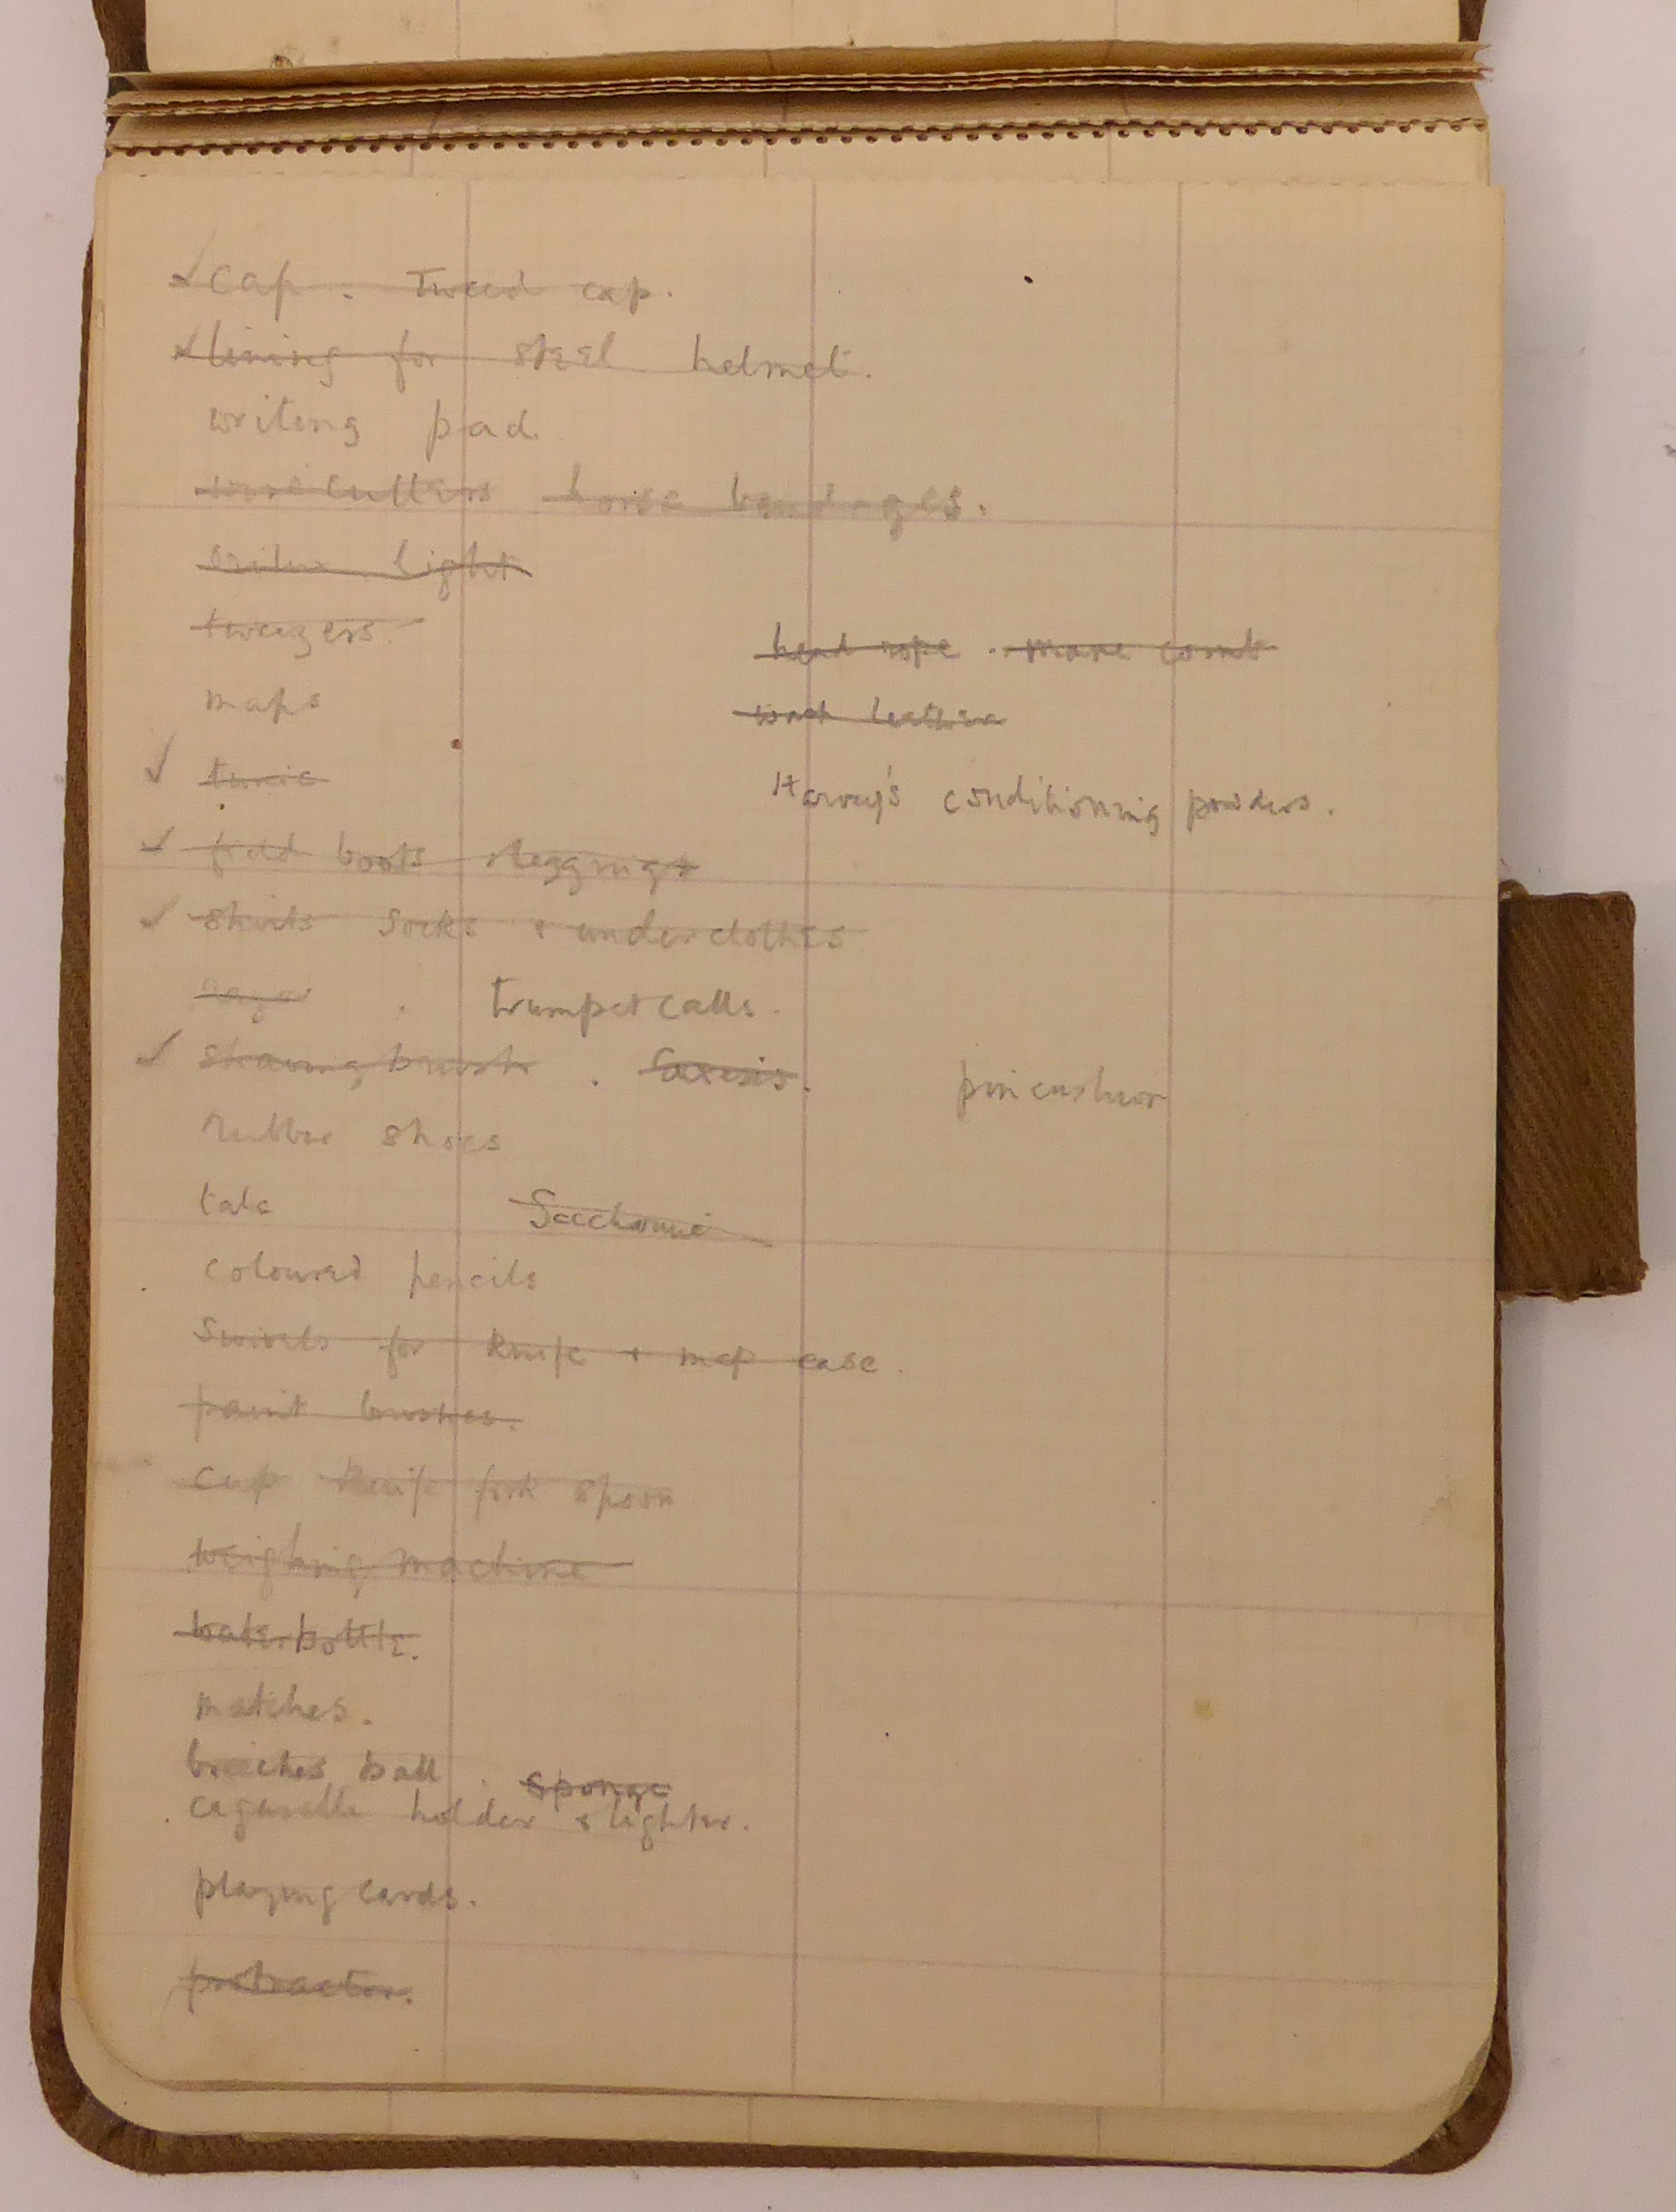 cap. Tweed cap.
lining for steel helmet.
writing pad.
wirecutters horse bandages.
orilux light
tweezers.
head rope. mane comb
maps
wash leather
tunic
Harvey's conditioning powders.
field boots & leggings
shirts socks & underclothes
razor. trumpet calls.
shaving brush.
pin cushion
rubber shoes
talc
coloured pencils
Swivels for knife + map case.
paint brushes.
cup knife fork spoon
weighing machine
waterbottle.
matches.
breeches ball. sponge
cigarette holder & lighter.
playing cards.
protractor.